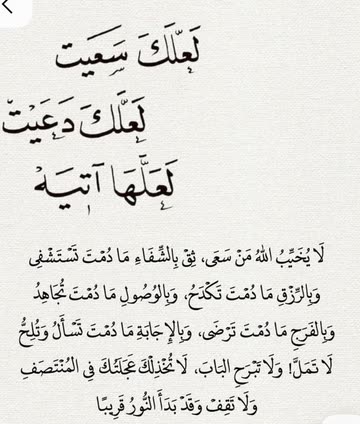 لَعَلَّكَ سَعَيت
لَعَلَّكَ دَعَيْت
لَعَلَّهَا آتِيَةْ
لَا يُخَيِّبُ اللهُ مَنْ سَعَى، ثِقْ بِالشِّفَاءِ مَا دُمْتَ تَسْتَشْفِى
وَبِالرِّزْقِ مَا دُمْتَ تَكْدَحُ، وَبِالوُصُولِ مَا دُمْتَ تُجَاهِدُ
وَبِالفَرَجِ مَا دُمْتَ تَرْضَى، وَبِالإِجَابَةِ مَا دُمْتَ تَسْأَلُ وَتُلِحُّ
لَا تَمَلَّ! وَلَا تَبْرَحِ البَابَ، لَا تُخْذِلْكَ عَجَلَتُكَ فِي المُنْتَصَفِ
وَلَا تَقِفْ وَقَدْ بَدَأَ النُّورُ قَرِيبًا